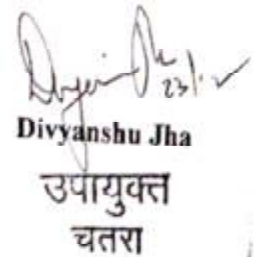 Divyanshu Jha
उपायुक्त
चतरा